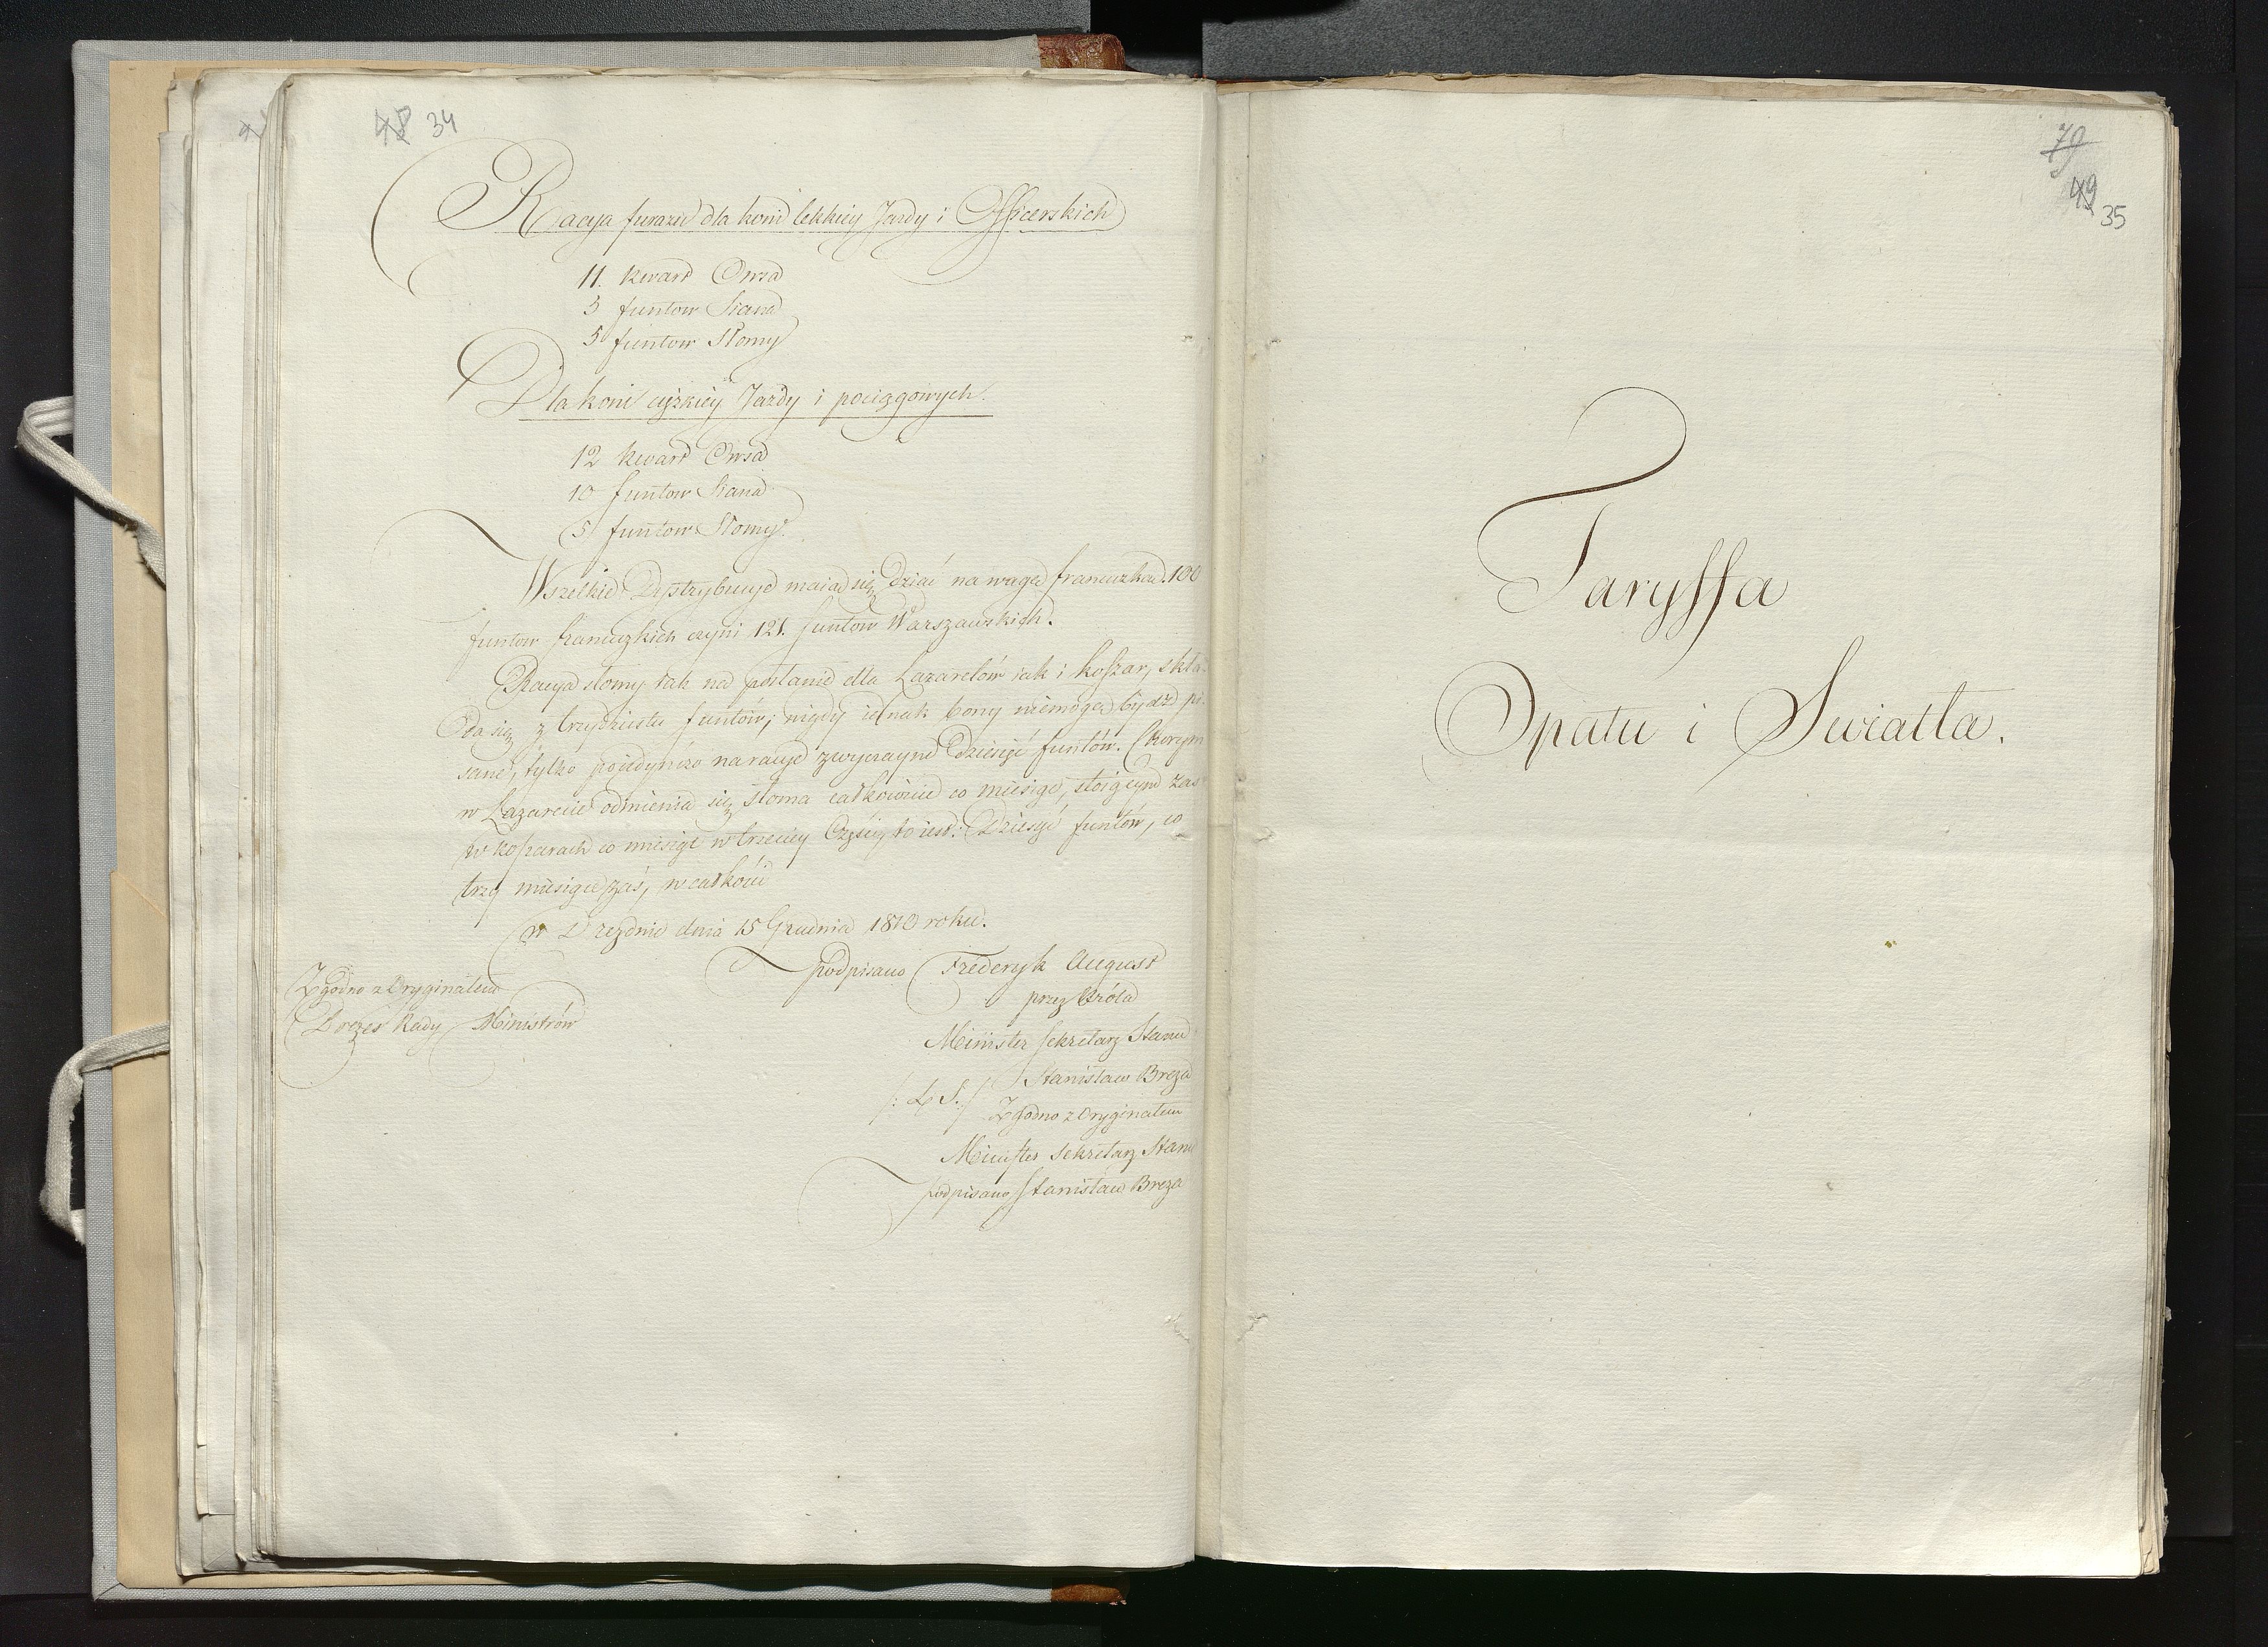 48 34
Racya furażu dla koni lekkiey Jazdy i Officerskich
11. kwart Owsa
5 funtow Siana
5 funtow Słomy
Dla koni cięzkiey Jazdy i pociągowych.
12 kwart Owsa
10 funtow Siana
5 funtow Słomy.
Wszelkie Dystrybucye maią się dziać na wagę francuzką. 100
funtow francuzkich czyni 121. funtow Warszawskich.
Racya słomy tak na posłanie dla Lazaretów iak i koszar, skła-
da się z trzydziestu funtów; nigdy iednak bony niemogą bydź pi-
sane, tylko poiedyńczo na racye zwyczayne dziesięć funtów. Chorym
w Lazarecie odmienia się słoma całkowicie co miesiąc, stoiącym zaś
w koszarach co miesiąc w trzeciey Części, to iest: Dziesięć funtów, co
trzy miesiące zaś, w całkości
w Dreznie dnia 15 Grudnia 1810 roku.
podpisano Frederyk August
przez Króla
Minister Sekretarz Stanu
Stanisław Breza
/: L S. :/
Zgodno z Oryginałem
Minister Sekretarz Stanu
podpisano Stanisław Breza
Zgodno z Oryginałem
Prezes Rady Ministrów
79
49
35
Taryffa
Opału i Swiatła.